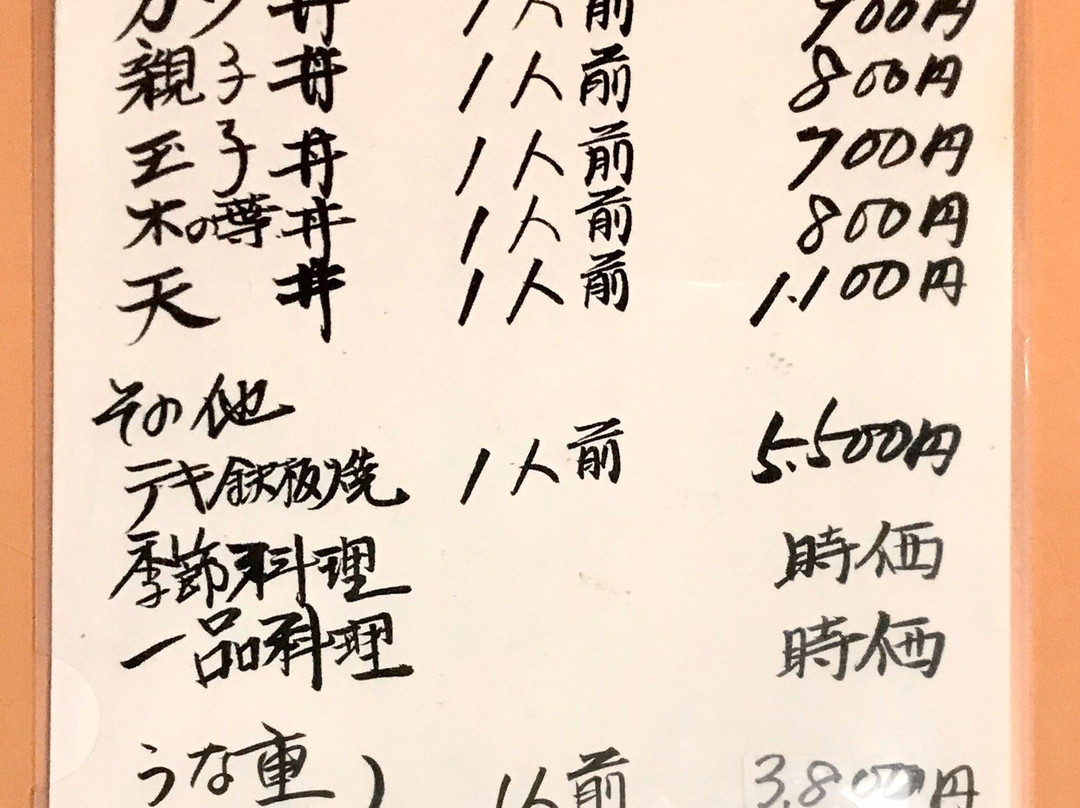 カツ丼 1人前 900円
親子丼 1人前 800円
玉子丼 1人前 700円
木の葉丼 1人前 800円
天丼 1人前 1.100円
その他
テキ鉄板焼 1人前 5.500円
季節料理 時価
一品料理 時価
うな重 1人前 3.800円